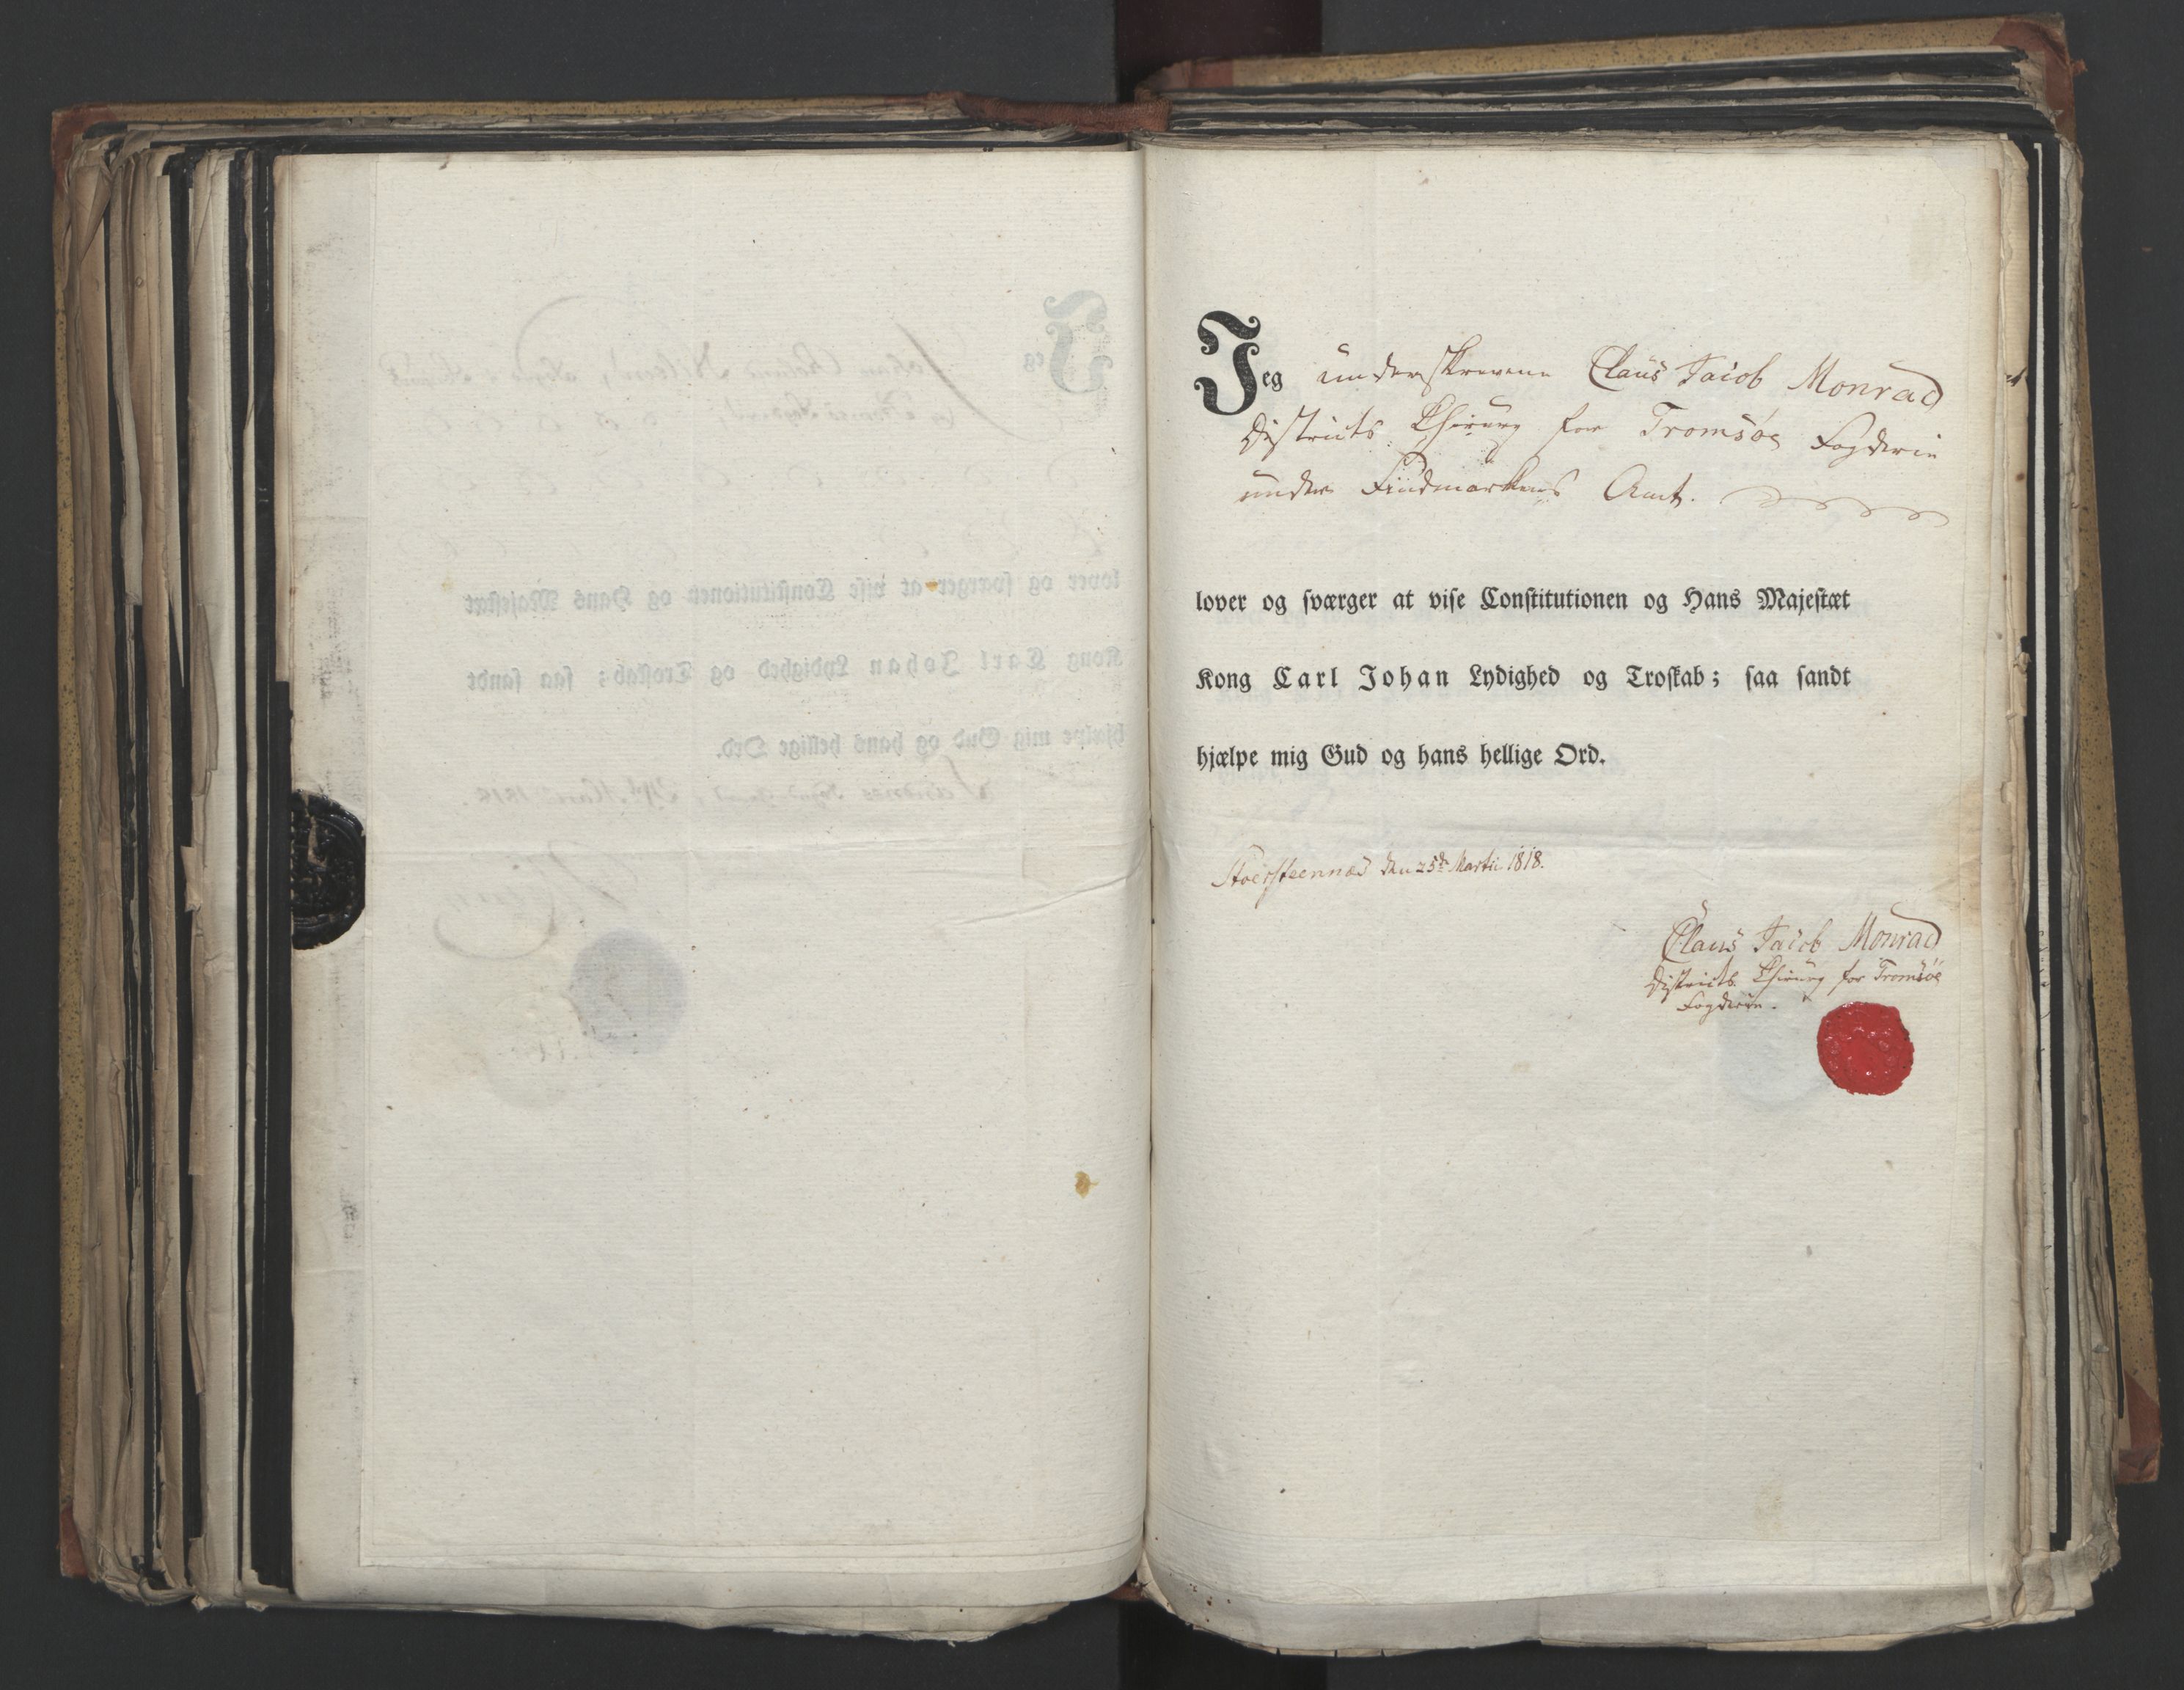 Jeg underskrevne Claus Jacob Monrad
Districts Chirurg for Tromsöe Fogderie
under Findmarkens Amt.
lover og sværger at vise Constitutionen og Hans Majestæt
Kong Carl Johan Lydighed og Troskab; saa sandt
hjælpe mig Gud og hans hellige Ord.
Stoersteennæs den 25de Martii 1818.
Claus Jacob Monrad
Districts Chirurg for Tromsöe
Fogderie.